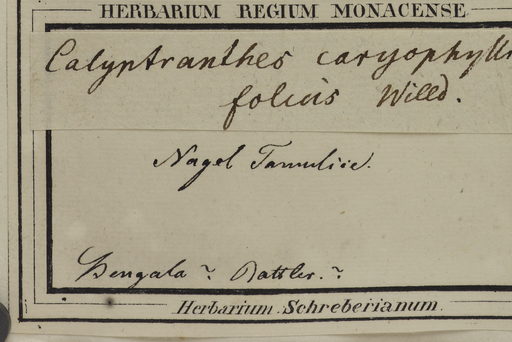 HERBARIUM REGIUM MONACENSE
Calyptranthes caryophylli
foliis Willd.
Nagel Tamulice.
Bengala ~ Rottler. ~
Herbarium Schreberianum.